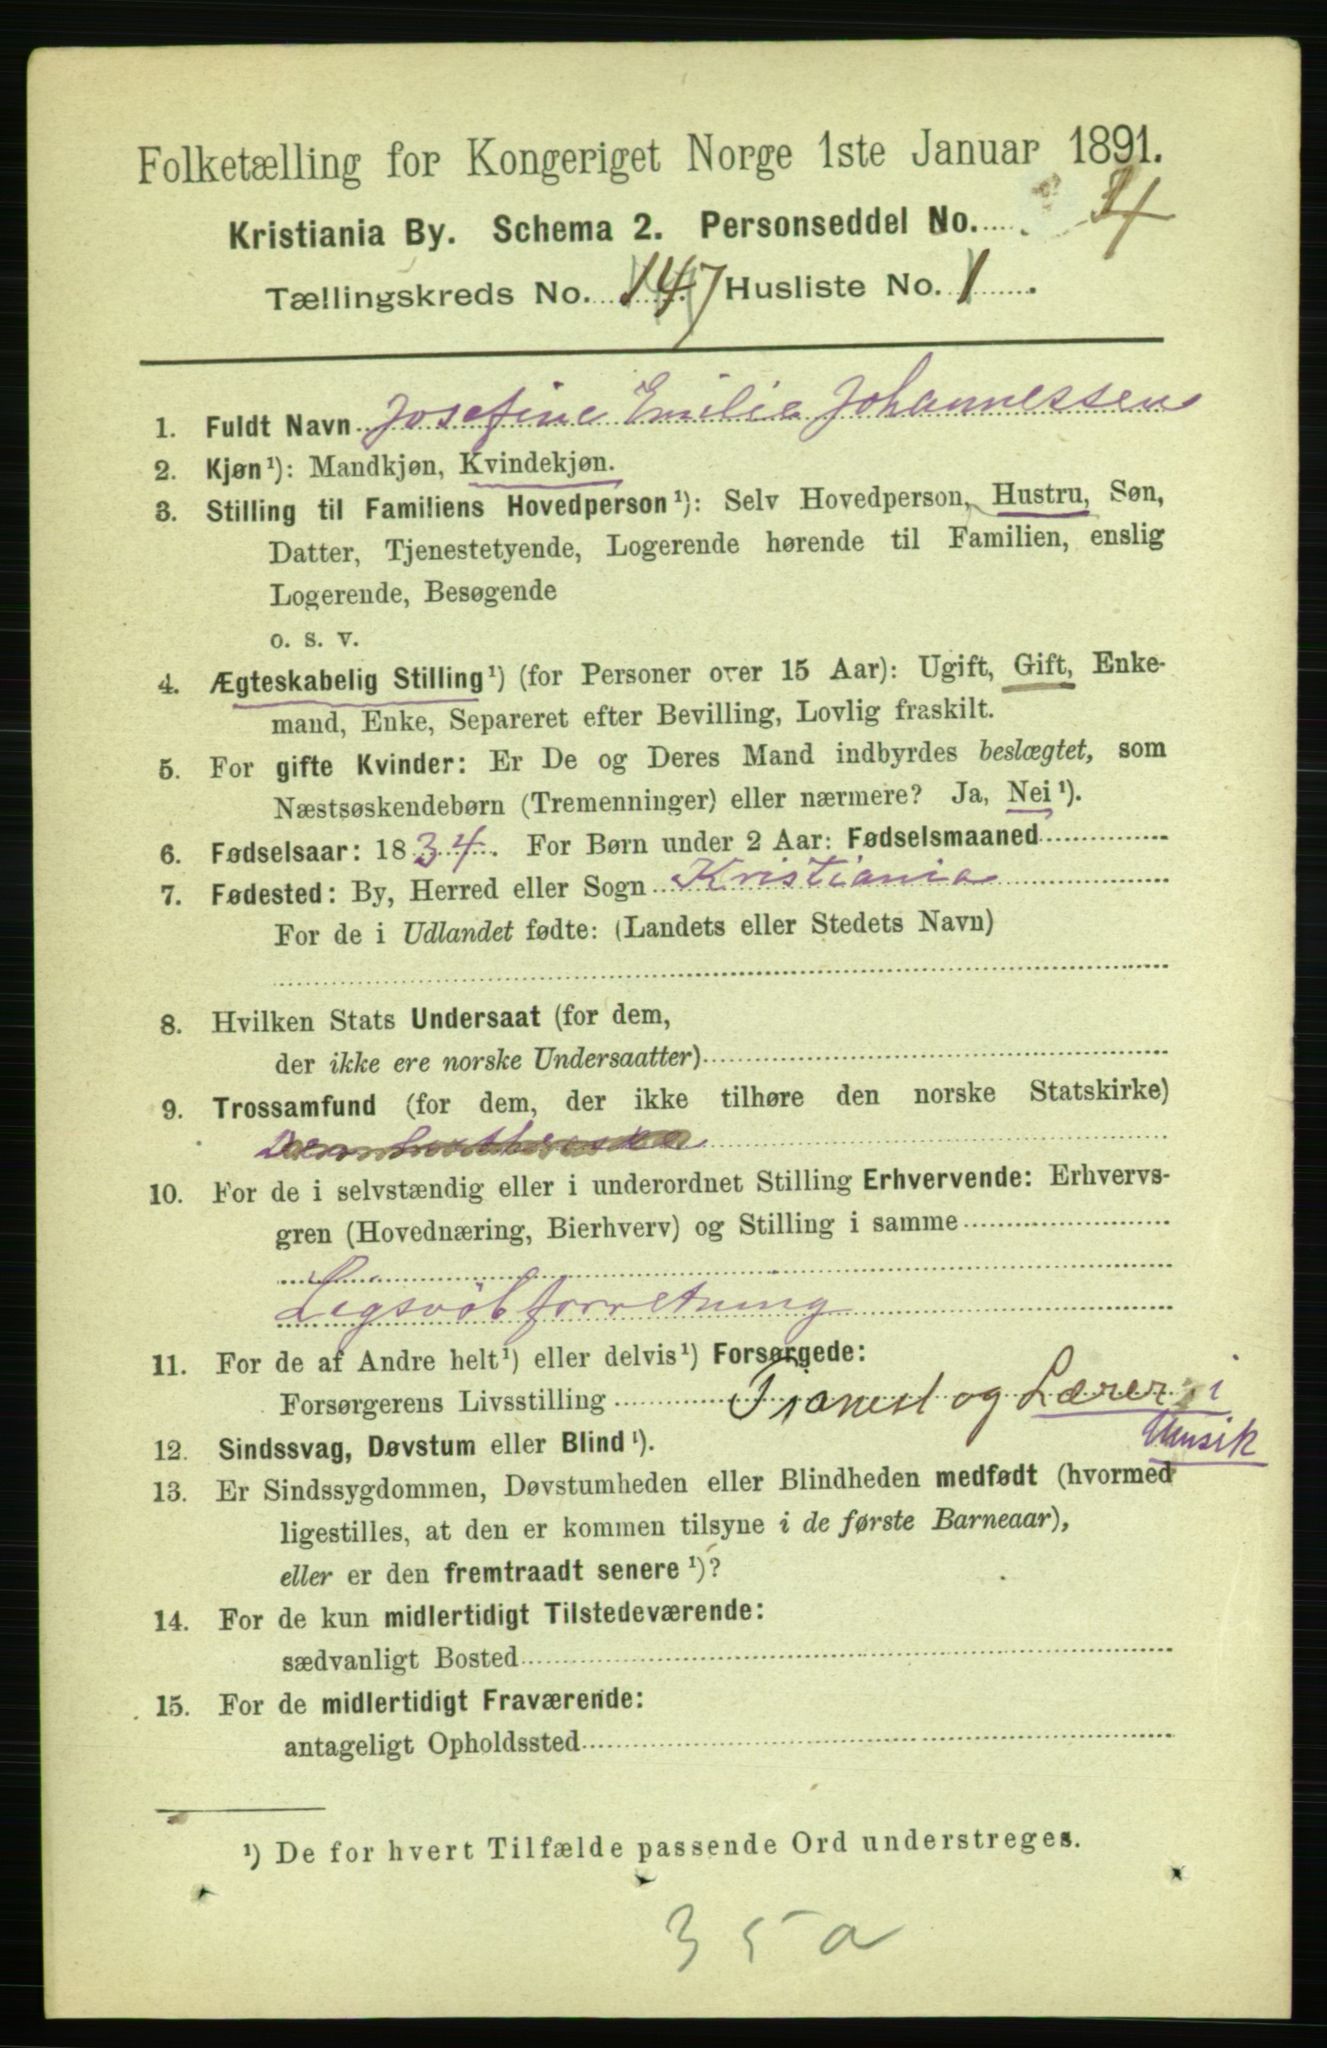 Folketælling for Kongeriget Norge 1ste Januar 1891.
Kristiania By. Schema 2. Personseddel No. 4
Tællingskreds No. 147 Husliste No. 1
1. Fuldt Navn Josefine Emilie Johannessen
2. Kjøn¹): Mandkjøn, Kvindekjøn.
3. Stilling til Familiens Hovedperson¹): Selv Hovedperson, Hustru, Søn,
Datter, Tjenestetyende, Logerende hørende til Familien, enslig
Logerende, Besøgende
o. s. v.
4. Ægteskabelig Stilling¹) (for Personer over 15 Aar): Ugift, Gift, Enke-
mand, Enke, Separeret efter Bevilling, Lovlig fraskilt.
5. For gifte Kvinder: Er De og Deres Mand indbyrdes beslægtet, som
Næstsøskendebørn (Tremenninger) eller nærmere? Ja, Nei¹).
6. Fødselsaar: 1834. For Børn under 2 Aar: Fødselsmaaned
7. Fødested: By, Herred eller Sogn Kristiania
For de i Udlandet fødte: (Landets eller Stedets Navn)
8. Hvilken Stats Undersaat (for dem,
der ikke ere norske Undersaatter)
9. Trossamfund (for dem, der ikke tilhøre den norske Statskirke)
10. For de i selvstændig eller i underordnet Stilling Erhvervende: Erhvervs-
gren (Hovednæring, Bierhverv) og Stilling i samme
Ligsvöbforretning
11. For de af Andre helt¹) eller delvis¹) Forsørgede:
Forsørgerens Livsstilling og Lærer i
Musik
12. Sindssvag, Døvstum eller Blind¹).
13. Er Sindssygdommen, Døvstumheden eller Blindheden medfødt (hvormed
ligestilles, at den er kommen tilsyne i de første Barneaar),
eller er den fremtraadt senere¹)?
14. For de kun midlertidigt Tilstedeværende:
sædvanligt Bosted
15. For de midlertidigt Fraværende:
antageligt Opholdssted
¹) De for hvert Tilfælde passende Ord understreges.
35a